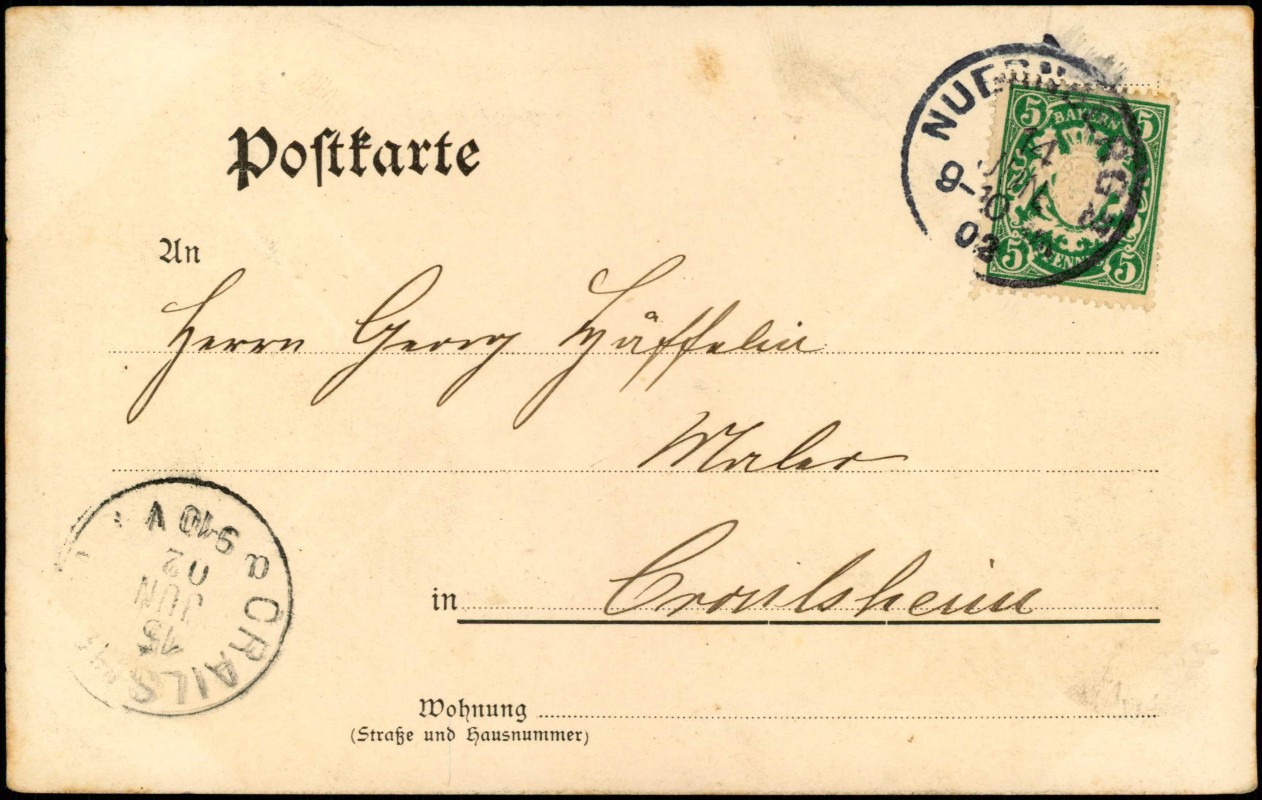 Postkarte
NUERNBERG 2
14
JUN
9-10
02
5 5
BAYERN
PFENNIG
5 5
An
Herrn Georg Häffelin
Maler
in Crailsheim
CRAILSHEIM
15
JUN
02
9-10 V
a
Wohnung
(Straße und Hausnummer)